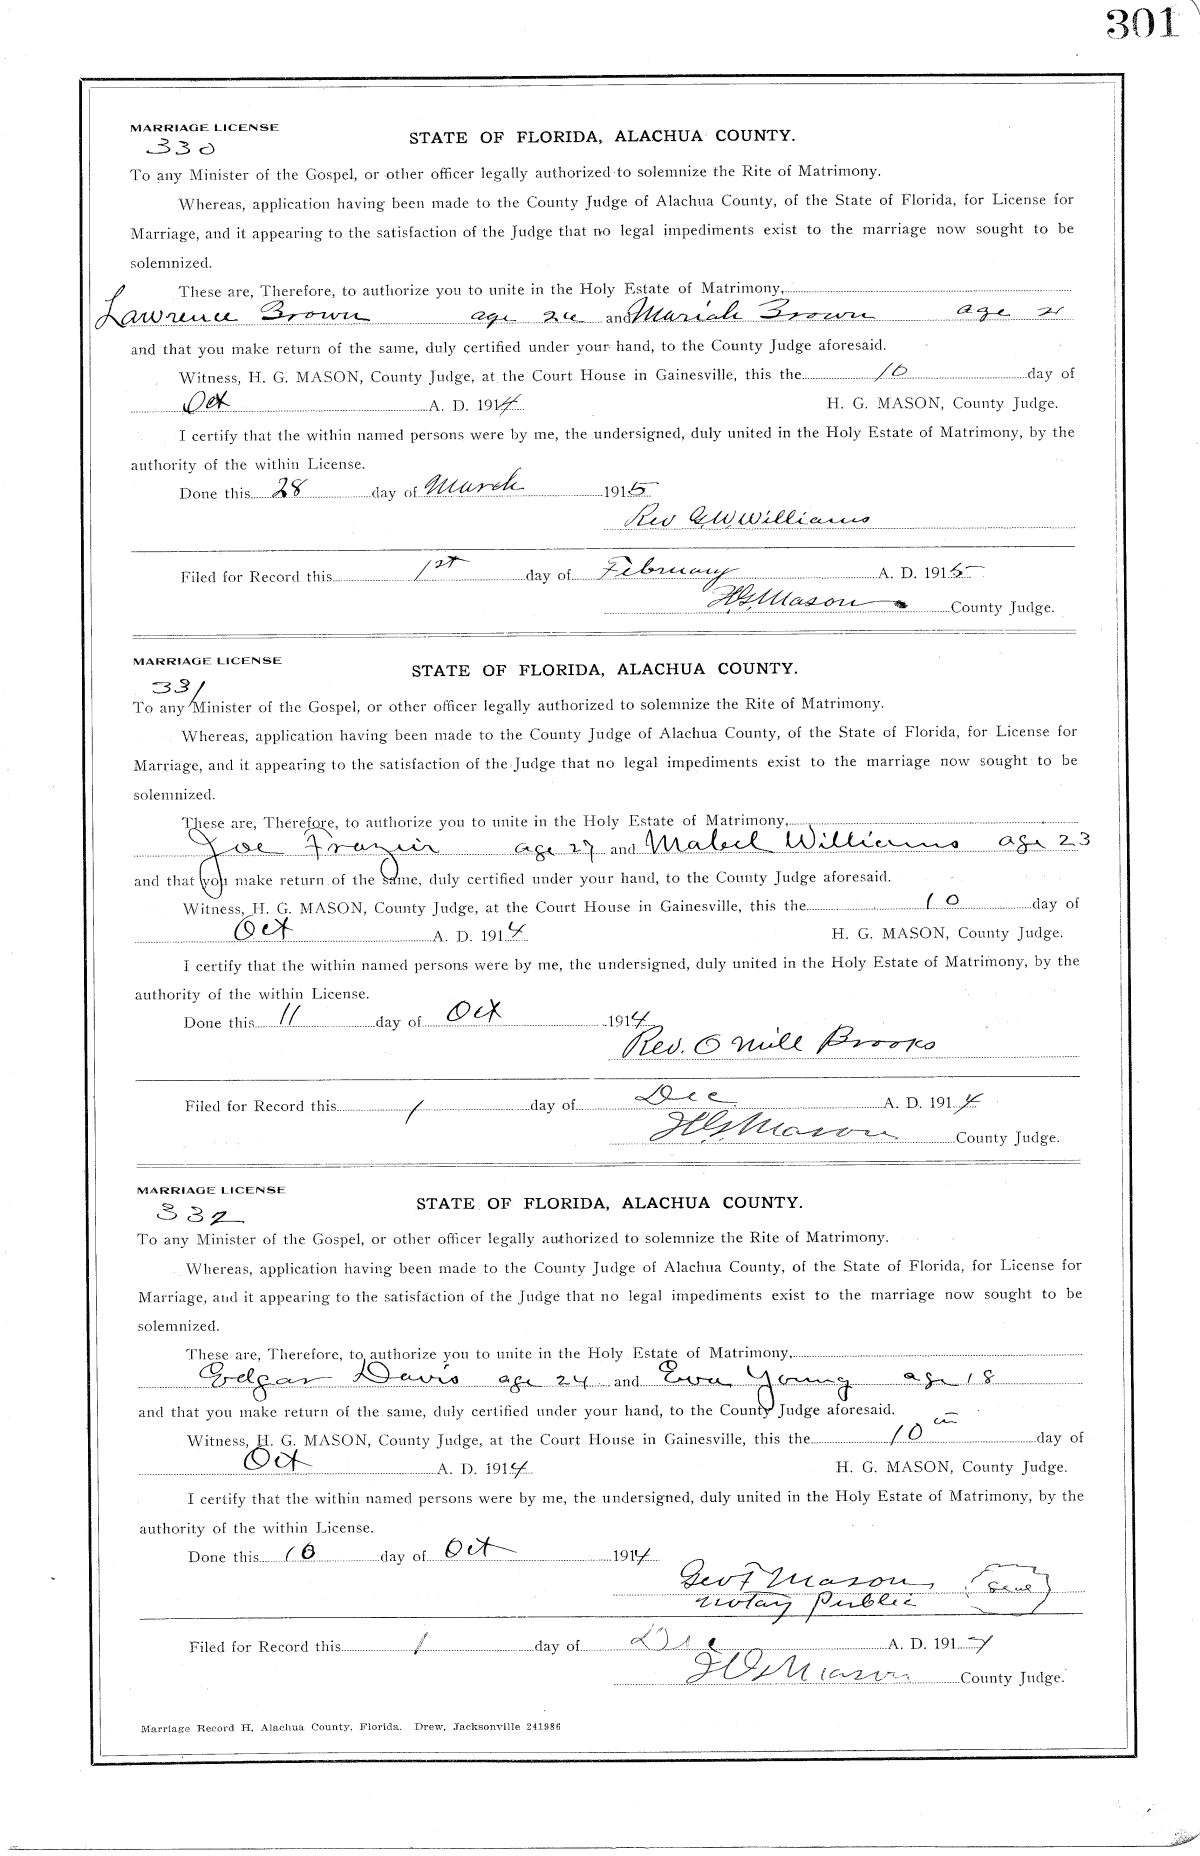 301
MARRIAGE LICENSE
330
STATE OF FLORIDA, ALACHUA COUNTY.
To any Minister of the Gospel, or other officer legally authorized to solemnize the Rite of Matrimony.
Whereas, application having been made to the County Judge of Alachua County, of the State of Florida, for License for
Marriage, and it appearing to the satisfaction of the Judge that no legal impediments exist to the marriage now sought to be
solemnized.
These are, Therefore, to authorize you to unite in the Holy Estate of Matrimony,
Lawrence Brown age and Mariah Brown age 21
and that you make return of the same, duly certified under your hand, to the County Judge aforesaid.
Witness, H. G. MASON, County Judge, at the Court House in Gainesville, this the 10 day of
Oct A. D. 1914 H. G. MASON, County Judge.
I certify that the within named persons were by me, the undersigned, duly united in the Holy Estate of Matrimony, by the
authority of the within License.
Done this 28 day of March 1915
Rev G.W. Williams
Filed for Record this 1st day of February A. D. 1915
H.G. Mason County Judge.
MARRIAGE LICENSE
331
STATE OF FLORIDA, ALACHUA COUNTY.
To any Minister of the Gospel, or other officer legally authorized to solemnize the Rite of Matrimony.
Whereas, application having been made to the County Judge of Alachua County, of the State of Florida, for License for
Marriage, and it appearing to the satisfaction of the Judge that no legal impediments exist to the marriage now sought to be
solemnized.
These are, Therefore, to authorize you to unite in the Holy Estate of Matrimony,
Joe Frazier age 27 and Mabel Williams age 23
and that you make return of the same, duly certified under your hand, to the County Judge aforesaid.
Witness, H. G. MASON, County Judge, at the Court House in Gainesville, this the 10 day of
Oct A. D. 1914 H. G. MASON, County Judge.
I certify that the within named persons were by me, the undersigned, duly united in the Holy Estate of Matrimony, by the
authority of the within License.
Done this 11 day of Oct 1914
Rev. O Mill Brooks
Filed for Record this 1 day of Dec. A. D. 1914
H.G. Mason County Judge.
MARRIAGE LICENSE
332
STATE OF FLORIDA, ALACHUA COUNTY.
To any Minister of the Gospel, or other officer legally authorized to solemnize the Rite of Matrimony.
Whereas, application having been made to the County Judge of Alachua County, of the State of Florida, for License for
Marriage, and it appearing to the satisfaction of the Judge that no legal impediments exist to the marriage now sought to be
solemnized.
These are, Therefore, to authorize you to unite in the Holy Estate of Matrimony,
Edgar Davis age 24 and Eva Young age 18
and that you make return of the same, duly certified under your hand, to the County Judge aforesaid.
Witness, H. G. MASON, County Judge, at the Court House in Gainesville, this the 10 day of
Oct A. D. 1914 H. G. MASON, County Judge.
I certify that the within named persons were by me, the undersigned, duly united in the Holy Estate of Matrimony, by the
authority of the within License.
Done this 10 day of Oct 1914
Geo F Mason Seal
Notay Public
Filed for Record this 1 day of Dec A. D. 191
H G Mason County Judge.
Marriage Record H, Alachua County, Florida. Drew, Jacksonville 241986